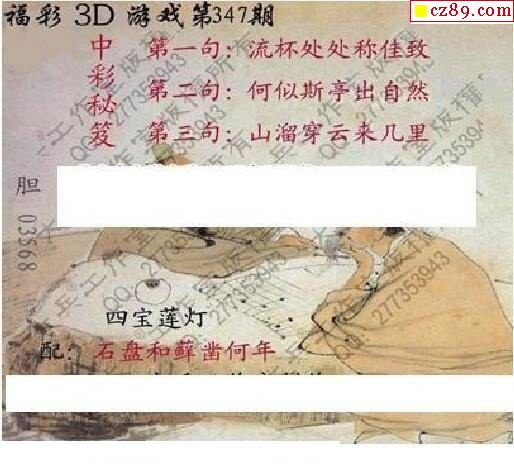 cz89.com
福彩 3D 游戏 第347期
中彩秘笈
第一句：流杯处处称佳致
第二句：何似斯亭出自然
第三句：山溜穿云来几里
胆 03568
四宝莲灯
配：石盘和藓凿何年
QQ：277353943